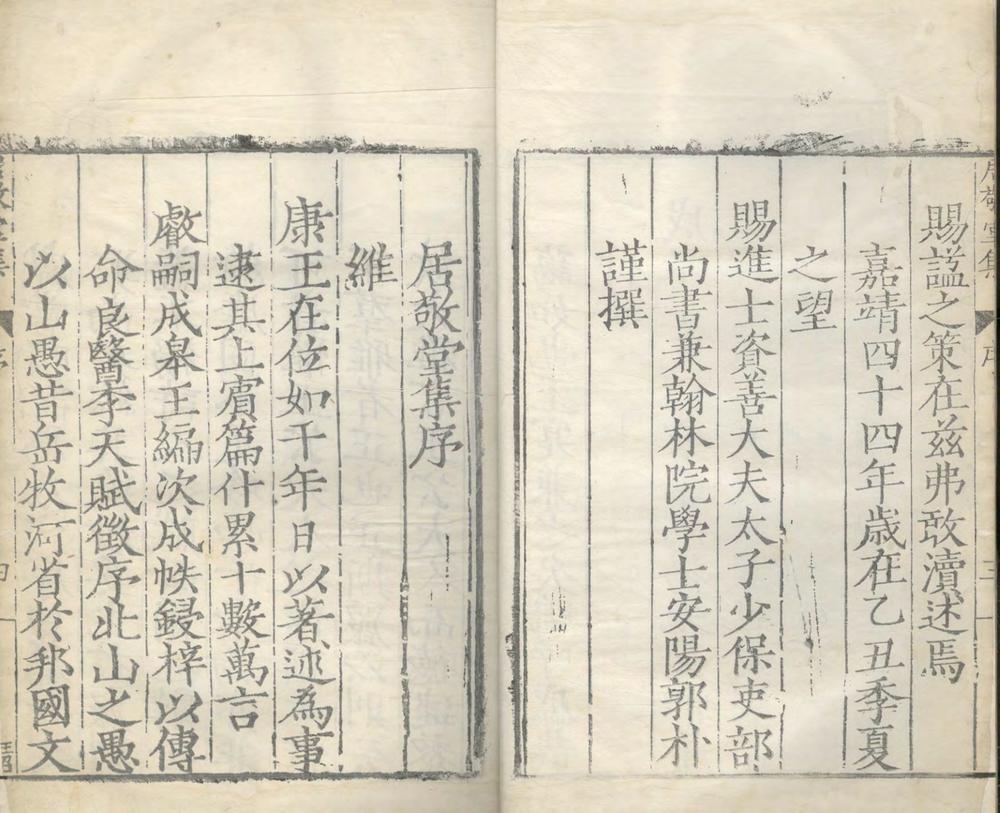 賜謚之策在茲弗敢瀆述焉
嘉靖四十四年歲在乙丑季夏
之望
賜進士資善大夫太子少保吏部
尚書兼翰林院學士安陽郭朴
謹撰
居敬堂集序
維
康王在位如干年日以著述為事
逮其上賔篇什累十數萬言
睿嗣成皋王編次成帙鋟梓以傳
命良醫李天賦徵序北山之愚
以山愚昔岳牧河省於邦國文